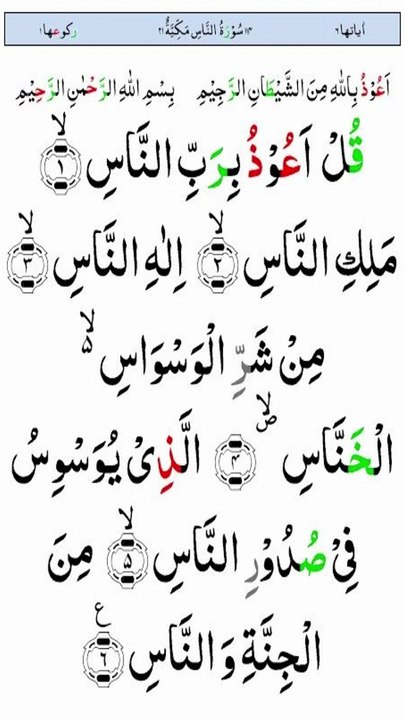 اٰیاتها ٦ ١١٣ سُوْرَةُ النَّاسِ مَکِّیَّةٌ ٢١ رکوعها ١
اَعُوْذُ بِاللّٰهِ مِنَ الشَّيْطٰانِ الرَّجِيْمِ بِسْمِ اللّٰهِ الرَّحْمٰنِ الرَّحِيْمِ
قُلْ اَعُوْذُ بِرَبِّ النَّاسِ ۙ ﴿١﴾
مَلِكِ النَّاسِ ۙ ﴿٢﴾ اِلٰهِ النَّاسِ ۙ ﴿٣﴾
مِنْ شَرِّ الْوَسْوَاسِ ۙ۵
الْخَنَّاسِ ۙ ﴿۴﴾ الَّذِىْ يُوَسْوِسُ
فِىْ صُدُوْرِ النَّاسِ ۙ ﴿۵﴾ مِنَ
الْجِنَّةِ وَ النَّاسِ ﴿٦﴾ ع